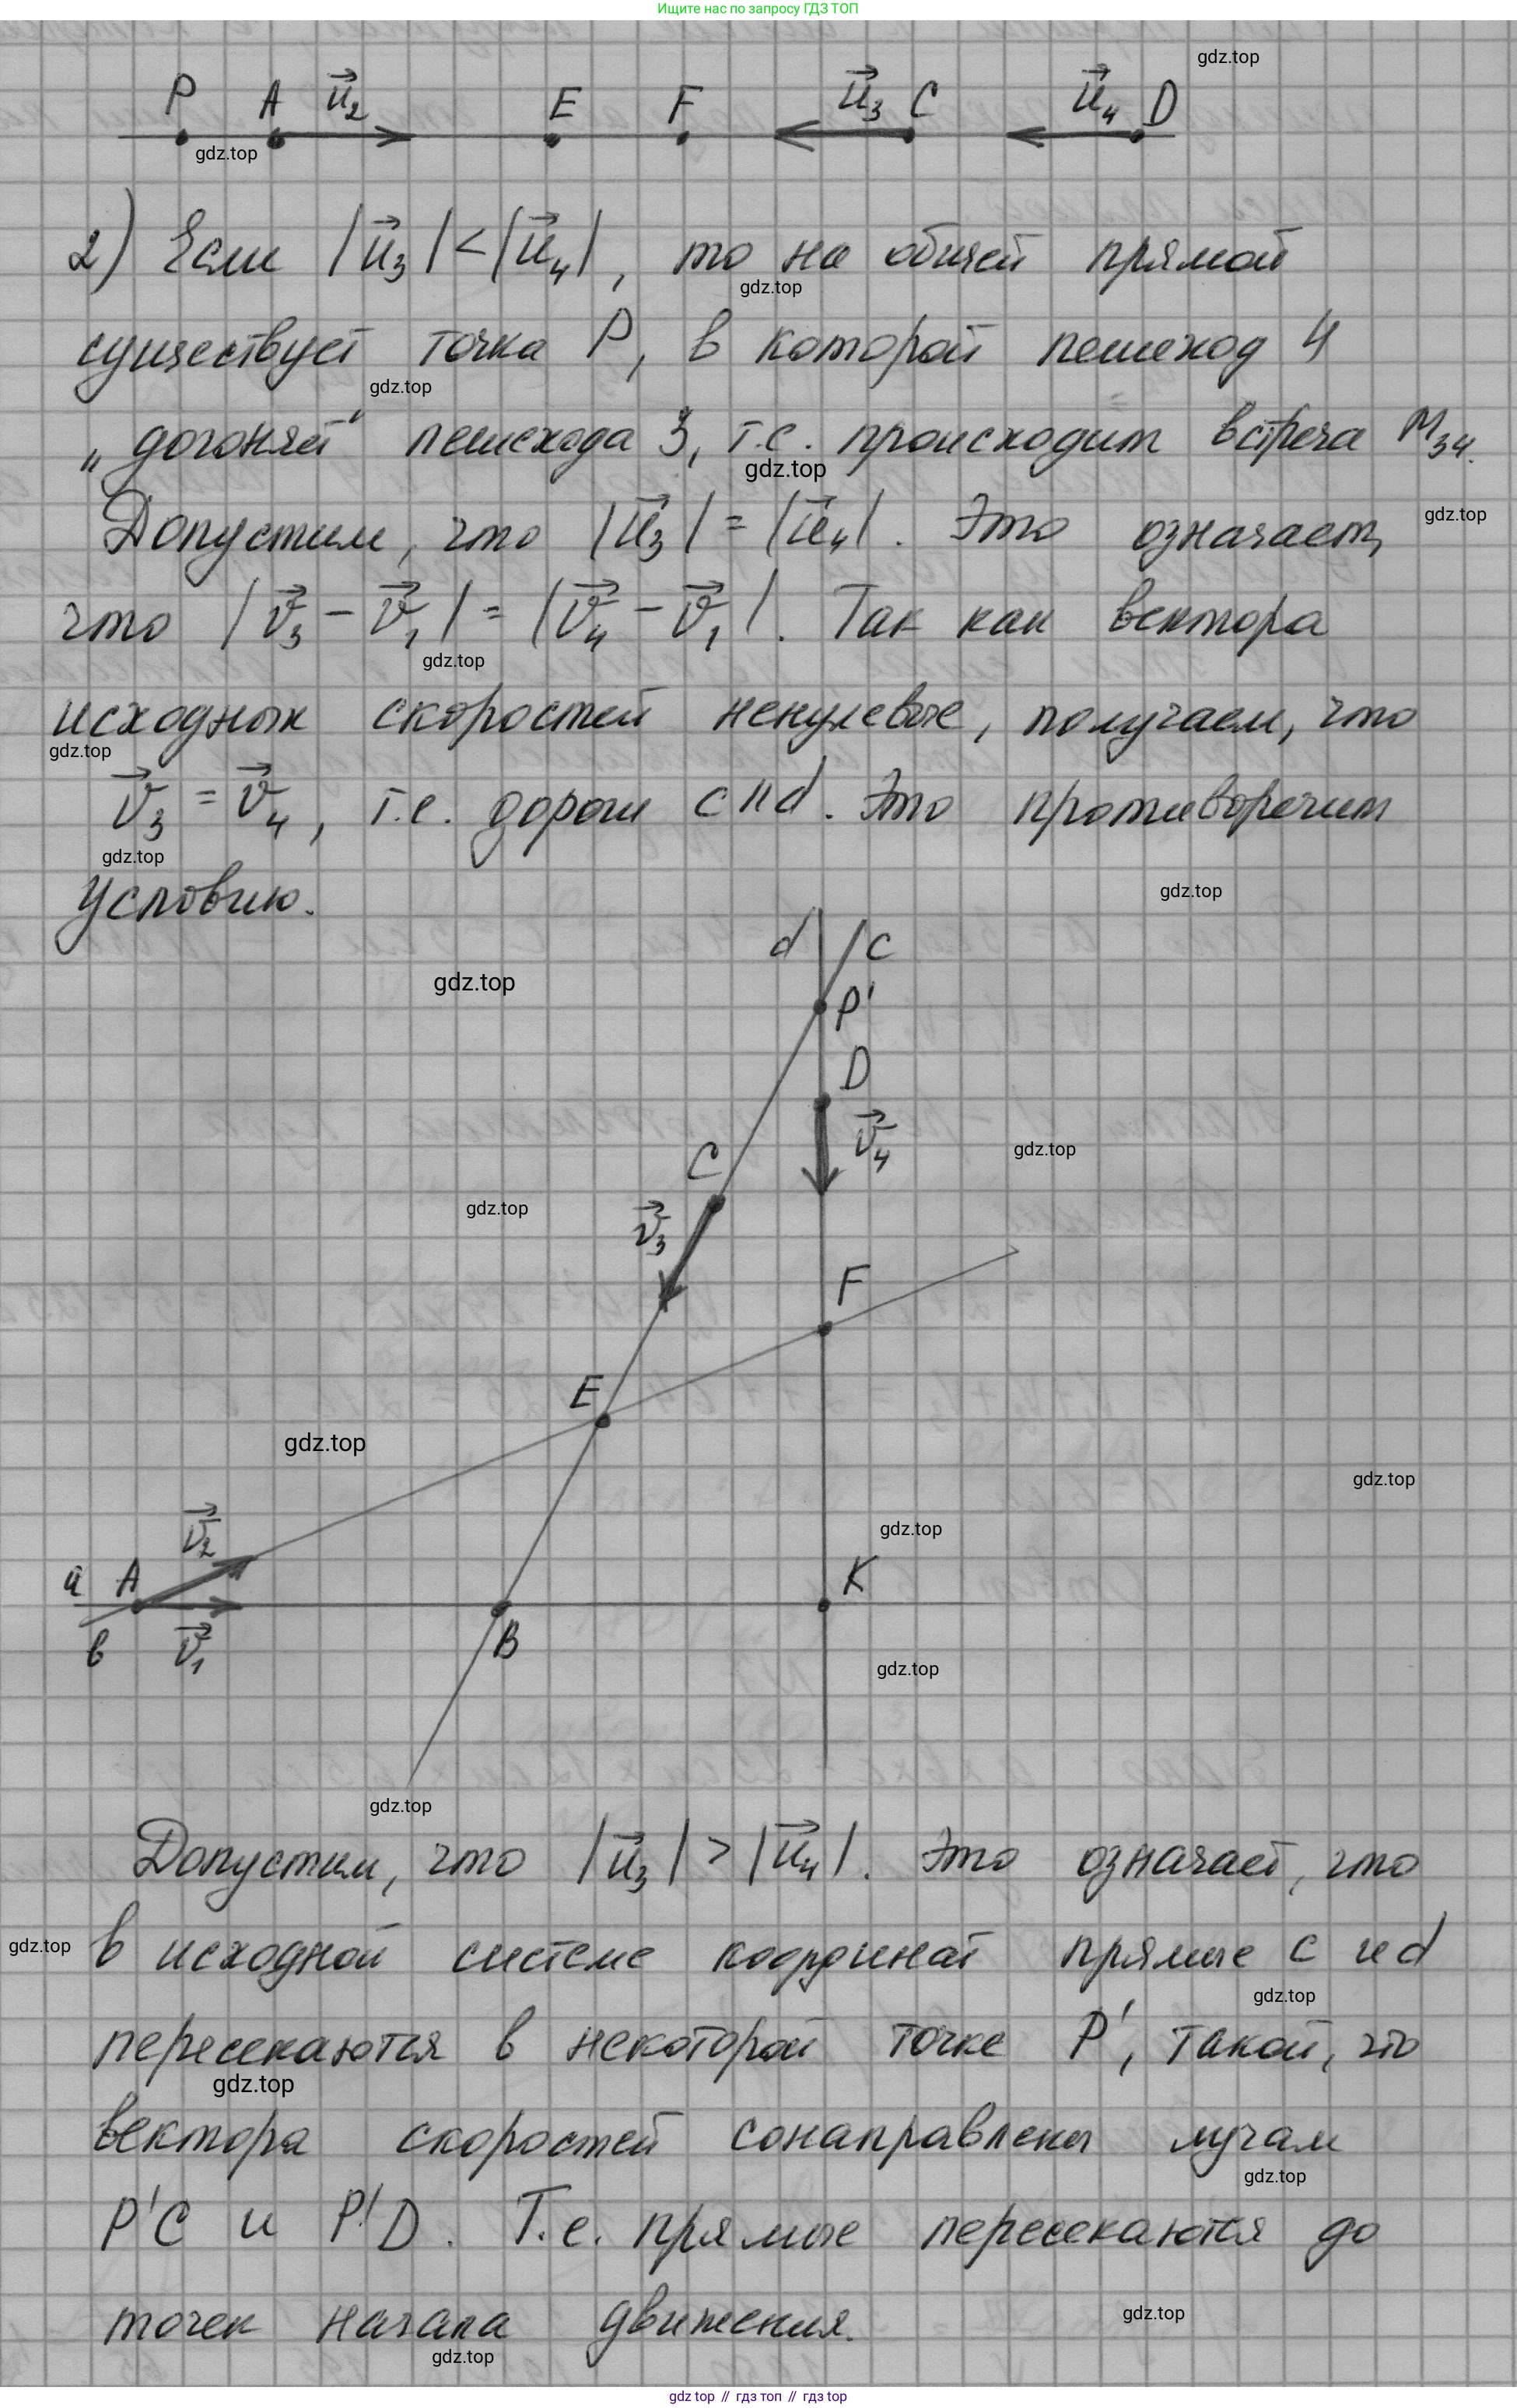 Ищите нас по запросу ГДЗ ТОП
gdz.top
P A u⃗₂ E F u⃗₃ C u⃗₄ D
gdz.top
2) Если |u⃗₃|<|u⃗₄|, то на общей прямой
gdz.top
существует точка P, в которой пешеход 4
gdz.top
„догоняет" пешехода 3, т.е. происходит встреча M₃₄.
gdz.top
Допустим, что |u⃗₃| = |u⃗₄|. Это означает,
gdz.top
что |v⃗₃ - v⃗₁| = |v⃗₄ - v⃗₁|. Так как вектора
gdz.top
исходных скоростей ненулевые, получаем, что
gdz.top
v⃗₃ = v⃗₄, т.е. дороги c || d. Это противоречит
gdz.top
условию.
gdz.top
d c
gdz.top
P'
D
v⃗₄
gdz.top
C
gdz.top
v⃗₃
F
E
gdz.top
gdz.top
v⃗₂
gdz.top
a A
K
b v⃗₁
B
gdz.top
gdz.top
Допустим, что |u⃗₃| > |u⃗₄|. Это означает, что
gdz.top
в исходной системе координат прямые c и d
gdz.top
пересекаются в некоторой точке P', такой, что
gdz.top
вектора скоростей сонаправлены лучам
gdz.top
P'C и P'D. Т.е. прямые пересекаются до
точек начала движения.
gdz.top
gdz.top
gdz top // гдз топ // гдз top